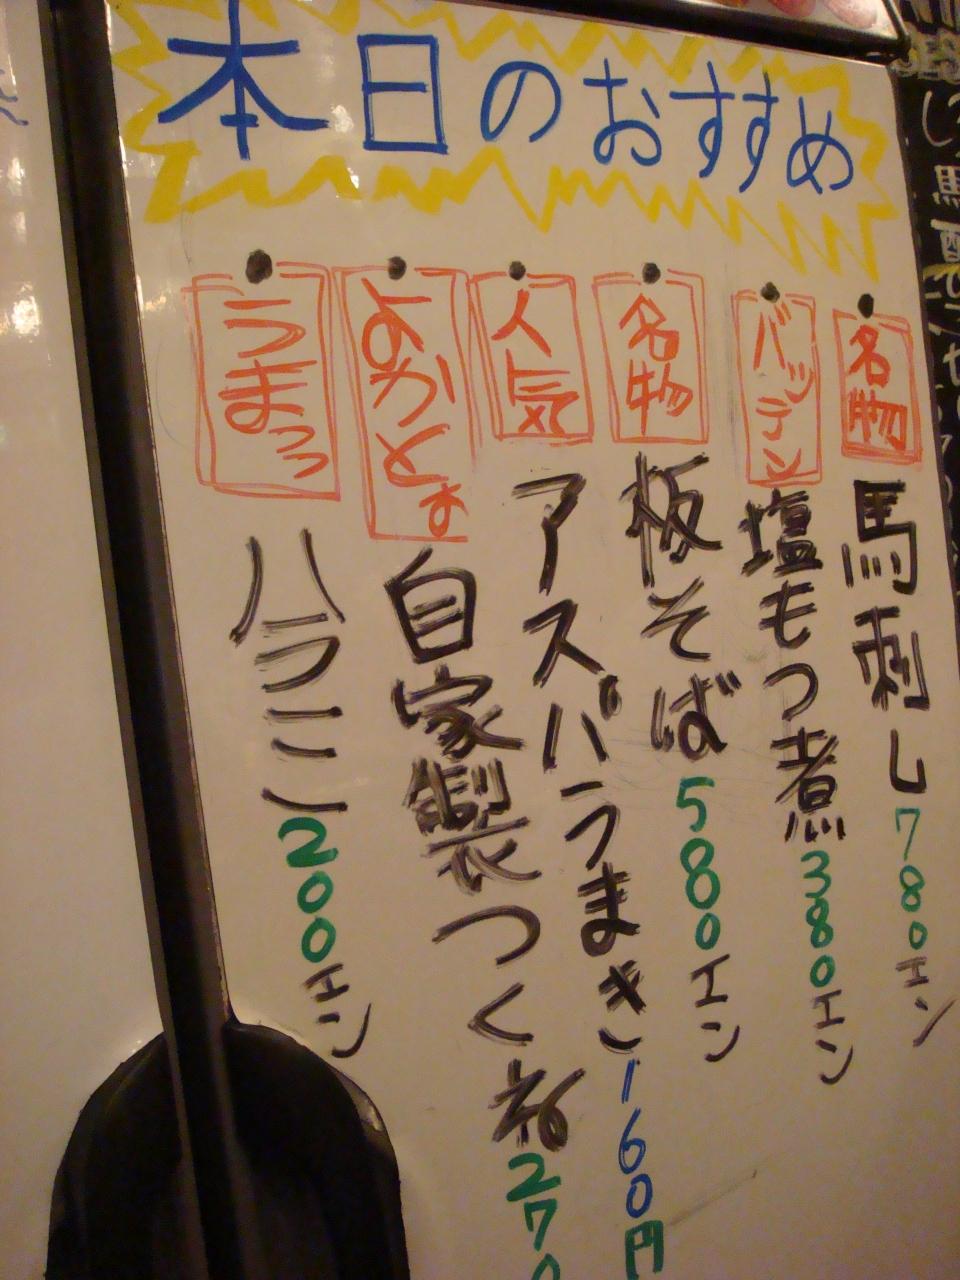 本日のおすすめ
名物 馬刺し 780エン
バッテン 塩もつ煮 380エン
名物 板そば 580エン
人気 アスパラうまき 160円
よかとよ 自家製つくね 270
うまっ ハラミン 200エン